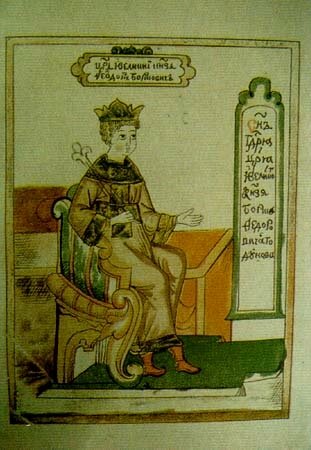 цр҃ь ивеликиї кнз҃ь
ѳеодоръ борисовичъ
сн҃ъ
гдр҃ѧ
црѧ
ивелико
кнзѧ
борис
ѳедоро
вича го
дунова